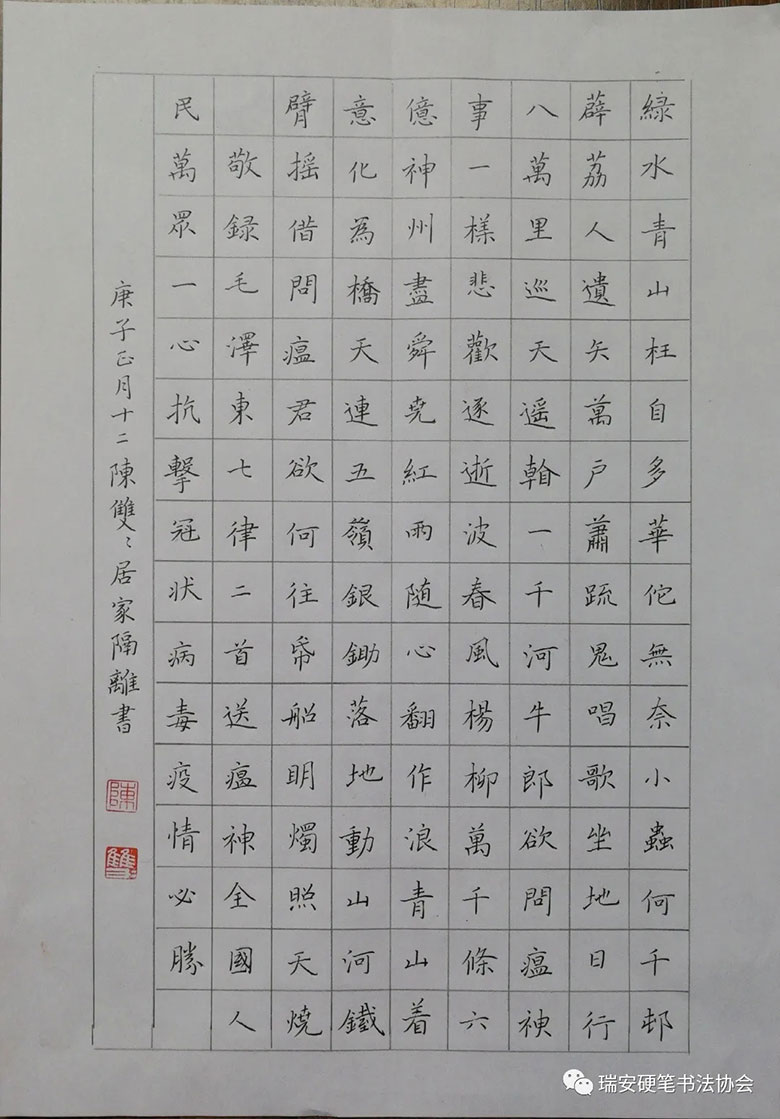 緑水青山枉自多華佗無奈小蟲何千邨
薜荔人遺矢萬戶蕭疏鬼唱歌坐地日行
八萬里巡天遥看一千河牛郎欲問瘟神
事一樣悲歡逐逝波春風楊柳萬千條六
億神州盡舜堯紅雨随心翻作浪青山着
意化為橋天連五嶺銀鋤落地動山河鐵
臂摇借問瘟君欲何往帋船明燭照天燒
敬録毛澤東七律二首送瘟神全國人
民萬眾一心抗擊冠状病毒疫情必勝
庚子正月十二陳雙〻居家隔離書
陳
雙
瑞安硬笔书法协会